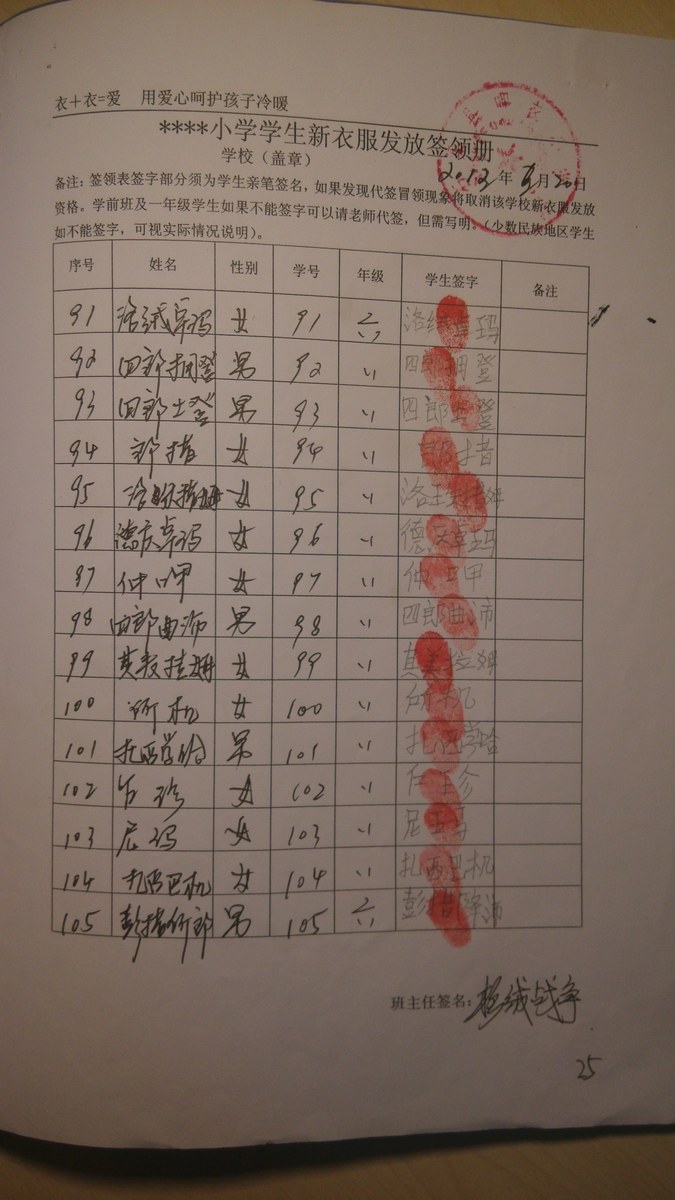 衣+衣=爱 用爱心呵护孩子冷暖
****小学学生新衣服发放签领册
学校（盖章） 2012年 月20日
备注：签领表签字部分须为学生亲笔签名，如果发现代签冒领现象将取消该学校新衣服发放
资格。学前班及一年级学生如果不能签字可以请老师代签，但需写明。（少数民族地区学生
如不能签字，可视实际情况说明）。
序号 姓名 性别 学号 年级 学生签字 备注
91 洛绒卓玛 女 91 洛绒卓玛
92 四郎拥登 男 92 〃 四郎拥登
93 四郎土登 男 93 〃 四郎土登
94 郎措 女 94 〃 郎措
95 女 95 〃
96 德庆卓玛 女 96 〃 德庆卓玛
97 仲呷 女 97 〃 仲呷
98 四郎曲沛 男 98 〃 四郎曲沛
99 女 99 〃
100 女 100 〃
101 扎西学哈 男 101 〃 扎西学哈
102 女 102 〃
103 尼玛 女 103 〃 尼玛
104 扎西巴机 女 104 〃 扎西巴机
105 男 105
班主任签名：
25